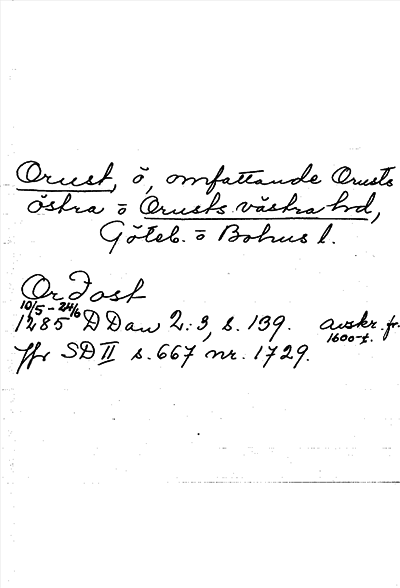 Orust, ö, omfattande Orusts
östra o Orusts västra hd,
Göteb. o Bohus l.
Or Jost
10/5 - 24/6
1285 DDan 2:3, s. 139. avskr. fr.
1600-t.
Jfr SD II s. 667 nr. 1729.